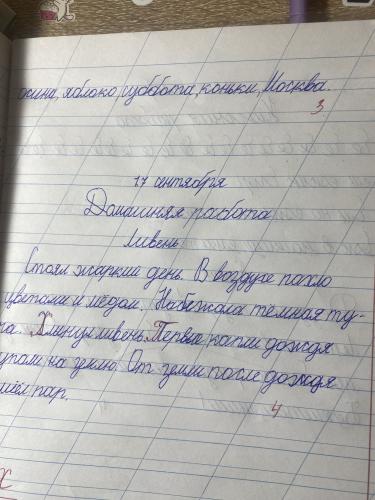 яблоко, суббота, коньки, Москва.
3
17 сентября
Домашняя работа
Ливень
Стоял жаркий день. В воздухе пахло
цветами и мёдом. Набежала темная ту-
ча. Хлинул ливень. Первые капли дождя
на землю. От земли после дождя
пар.
4